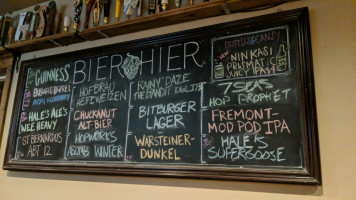 BIER HIER
GUINNESS
BOURBON BARREL
HALE'S ALE'S
WEE HEAVY
ST. BERNARDUS
ABT 12
HOFBRAU
HEFEWEIZEN
CHUCKANUT
ALT BIER
HOPWORKS
WINTER
RAINY DAZE
THE BANDIT
BITBURGER
LAGER
WARSTEINER-
DUNKEL
NINKASI
PRISMATIC
JUICY IPA
7 SEAS
HOP PROPHET
FREMONT-
MOD POD IPA
HALE'S
SUPERGOOSE